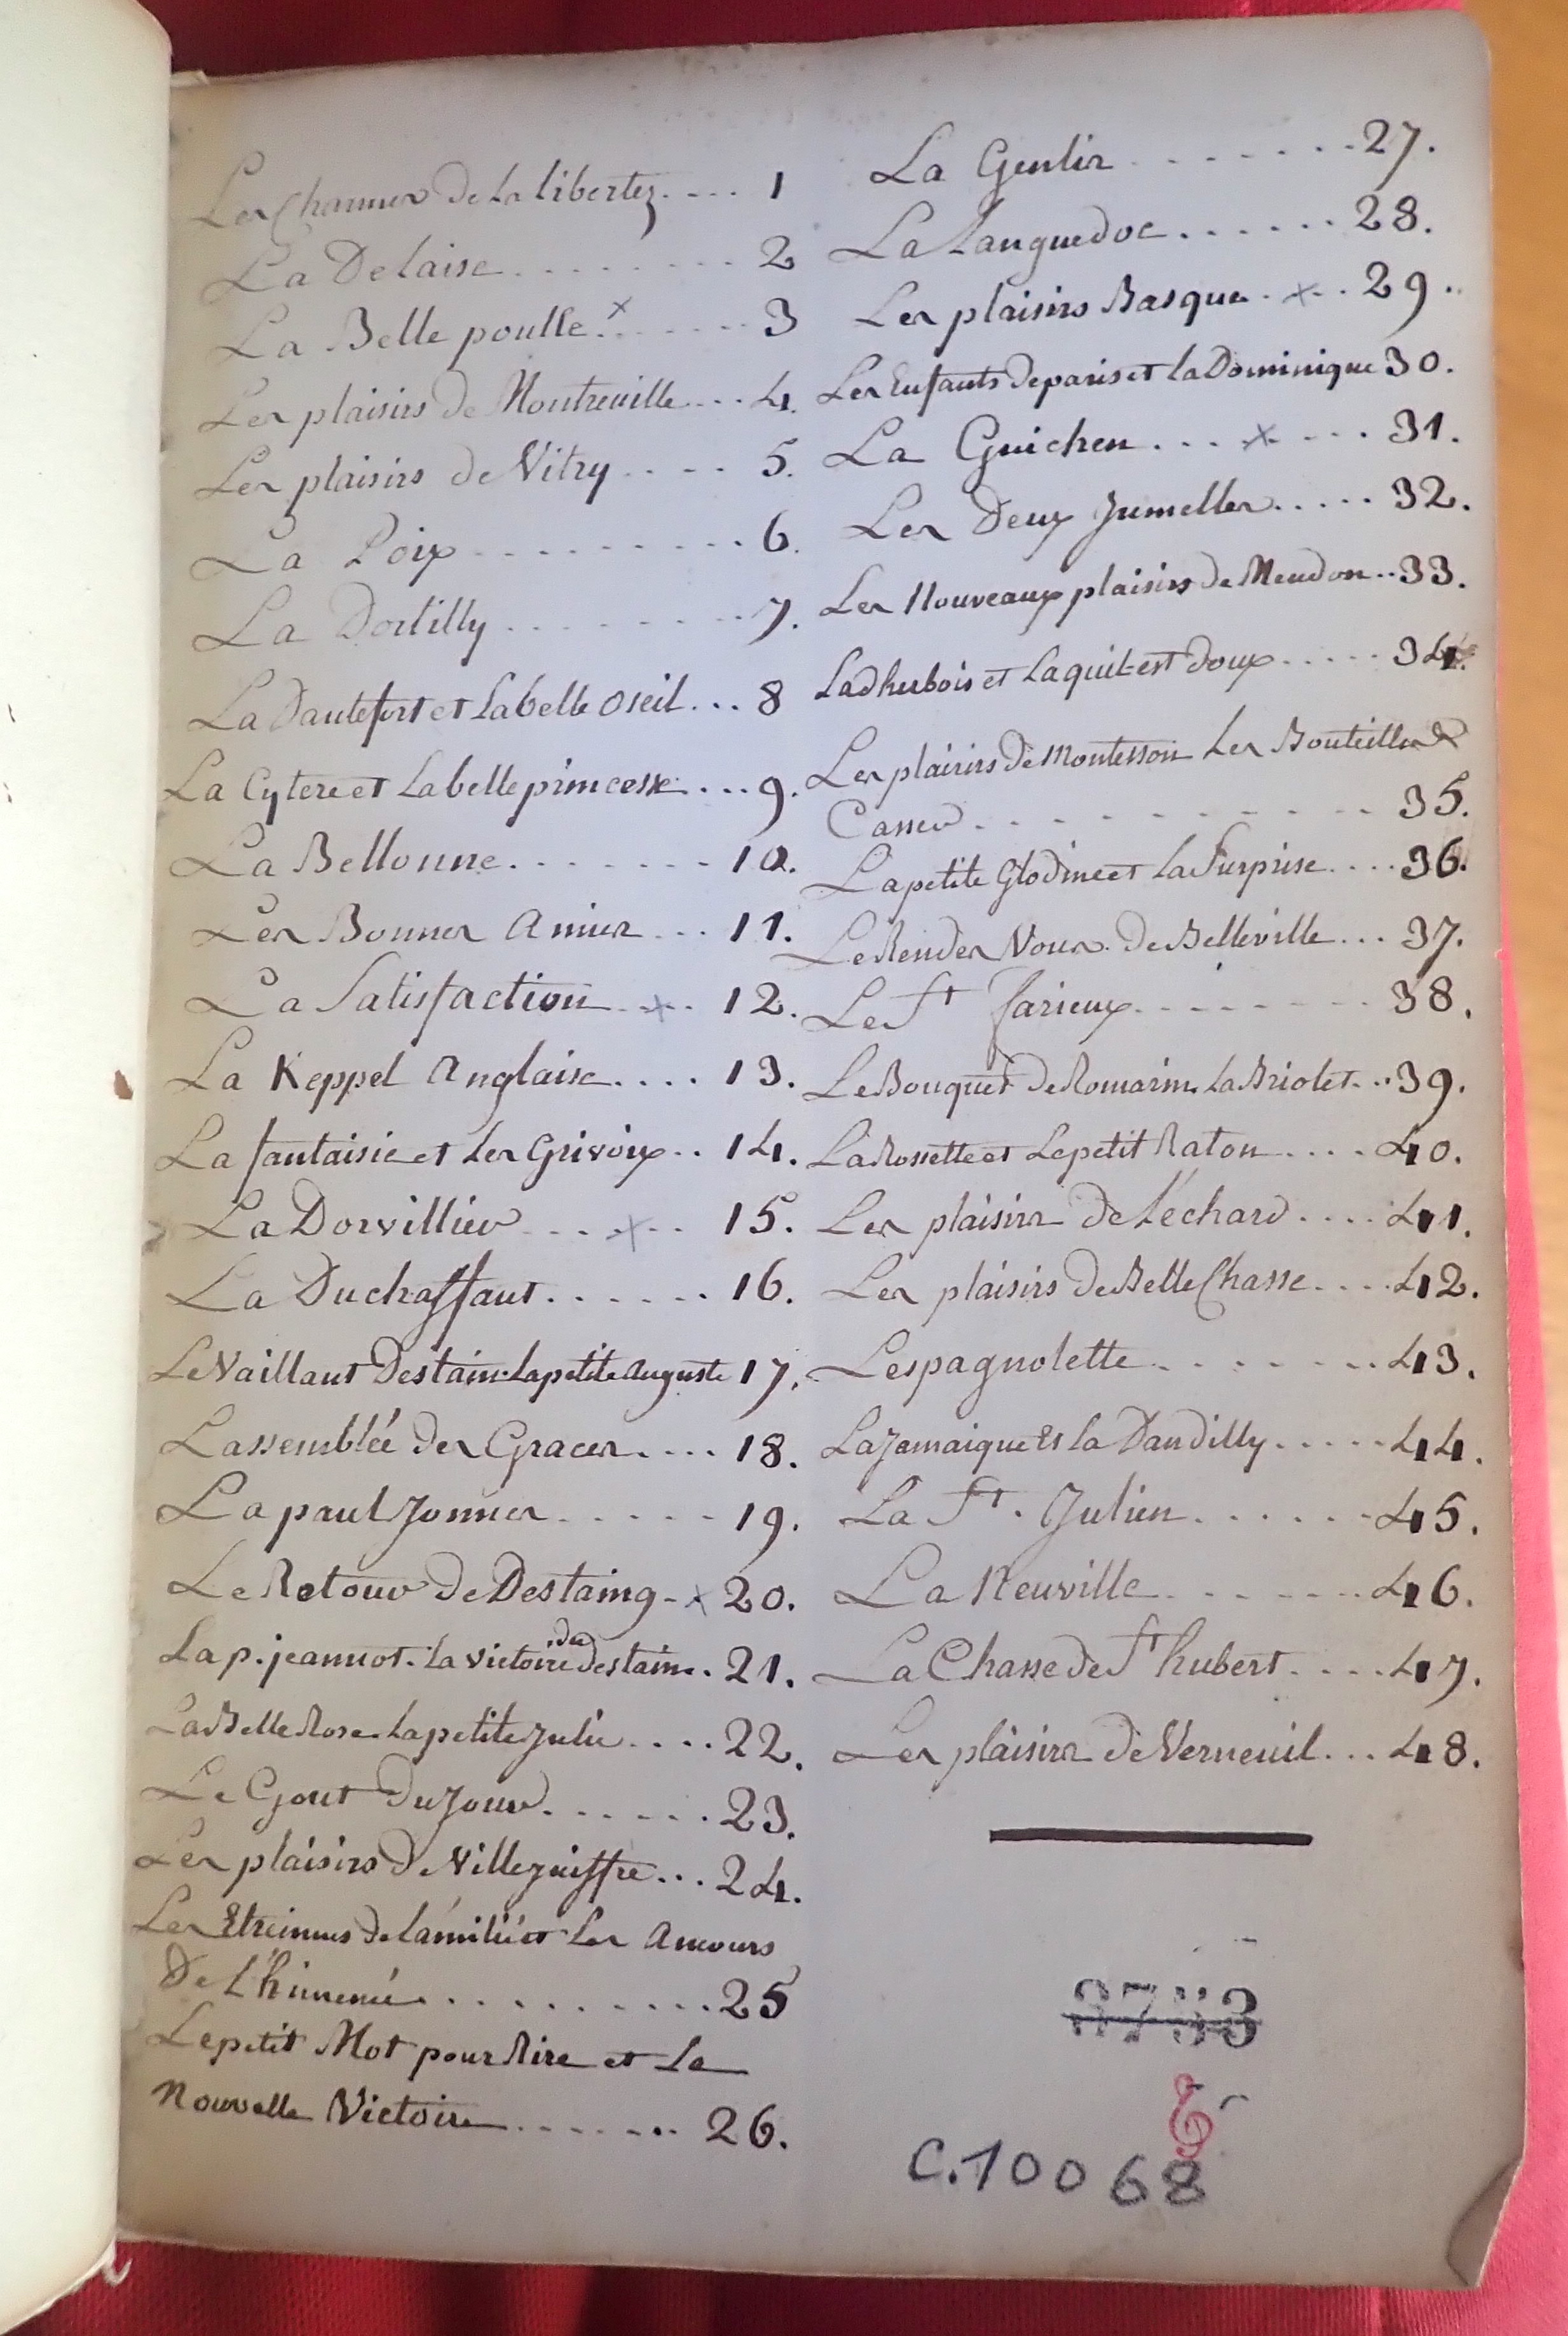 Les Charmes de La libertez.... 1
La Delaise......... 2
La Belle poulle x...... 3
Les plaisirs de Montreuille... 4.
Les plaisirs de Vitry.... 5.
La Poix.......... 6.
La Dortilly........ 7.
La Dautefort et La belle oseil... 8
La Cytere et La belle princesse.... 9.
La Bellonne....... 10.
Les Bonnes Amies... 11.
La Satisfaction..x.. 12.
La Keppel Anglaise.... 13.
La fantaisie et Les Grivoix.. 14.
La Dorvilliers...x.. 15.
La Duchaffaut....... 16.
Le Vaillant Destain. La petite Auguste 17.
Lassemblée des Graces.... 18.
La paul Jonnes...... 19.
Le Retour de Destaing-x 20.
La p. jeannot. La victoire de Destain.. 21.
La Belle Rose La petite Julie.... 22.
Le Gout du Jour...... 23.
Les plaisirs de Villejuiffre... 24.
Les Etreinnes de L'amitié et Les Amours
De L'himené.......... 25
Le petit Mot pour Rire et La
Nouvelle Victoire....... 26.
La Genlis........ 27.
La Languedoc...... 28.
Les plaisirs Basques.x.. 29.
Les Enfants de paris et La Dominique 30.
La Guichen...x.... 31.
Les Deux Jumelles..... 32.
Les Nouveaux plaisirs de Meudon.. 33.
La dherbois et La quil est doux..... 34.
Les plaisirs de Montesson Les Bouteilles
Cassés........... 35.
La petite Glodine et La Surprise.... 36.
Le Rendes Vous de Belleville... 37.
Le St farieux....... 38.
Le Bouquet de Romarin. La Briolet... 39.
La Rossette et Le petit Raton.... 40.
Les plaisirs de Léchard.... 41.
Les plaisirs de Belle Chasse.... 42.
Lespagnolette........ 43.
La Jamaique Et la Dandilly..... 44.
La St. Julien...... 45.
La Neuville....... 46.
La Chasse de St hubert.... 47.
Les plaisirs de Verneuil... 48.
C.10068